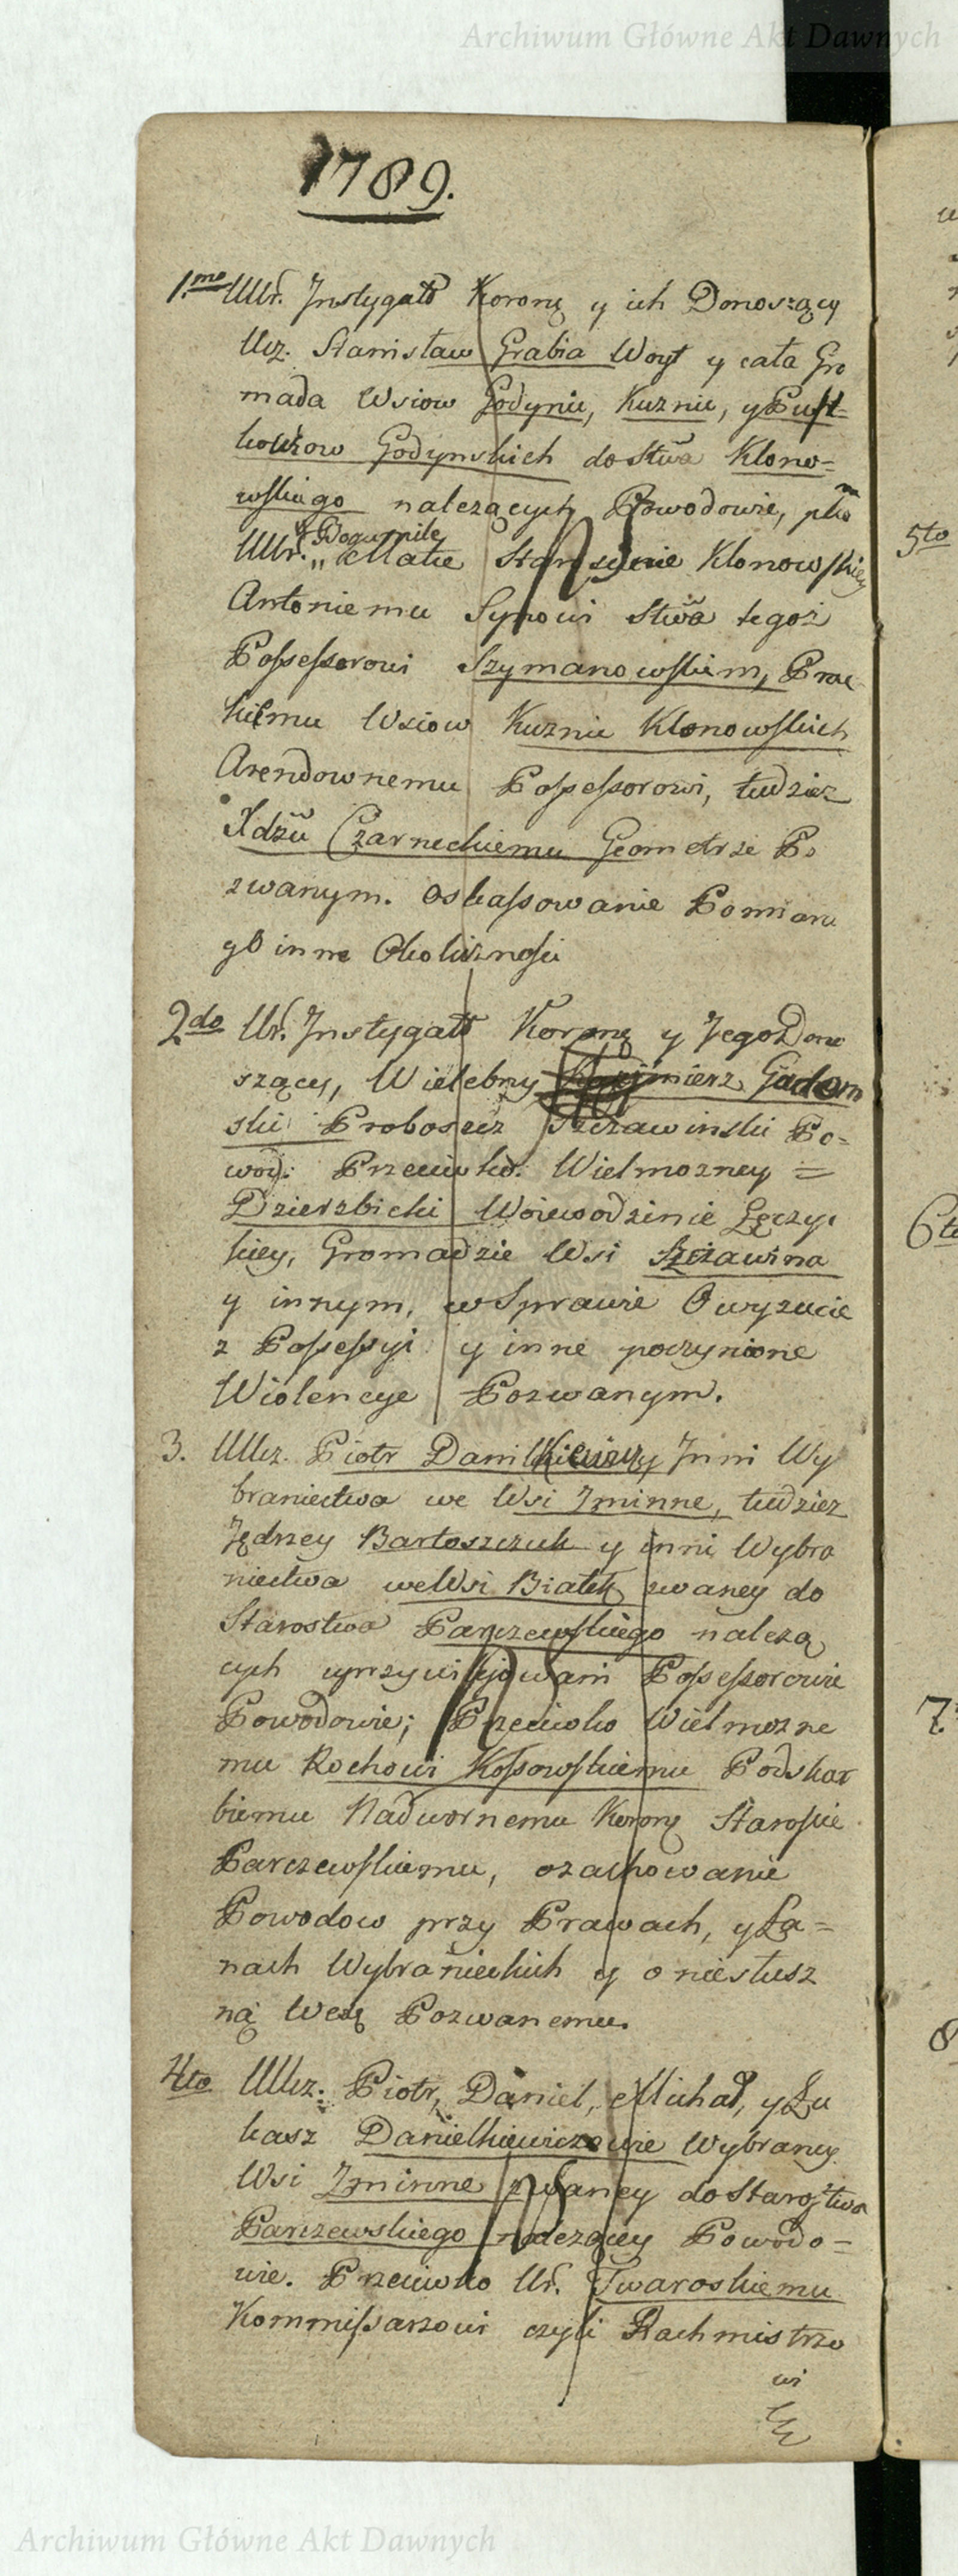 Archiwum Główne Akt Dawnych
1789.
1.mo UUr. Instygato Korony y ich Donoszący
Ucz. Stanisław Grabia Woyt y cała Gro
mada Wsiow Godynic, Kuznic, y Pust-
kowiow Godynskich do Stwa Klono=
wskiego należących Powodowie, pko
y Bogumile
UUr. „ Matce Starscinie Klonowskiey
Antoniemu Synowi Stwa tegoż
Possessorowi Szymanowskim,
kiemu Wsiow Kuznic Klonowskich
Arendownemu Possessorowi, tudziez
Jdzū Czarneckiemu Geometrze Po
zwanym. Oskassowanie Pomiaru
yO inne Okoliznosci
2do Ur. Instygato Korony y Jego Dono
szący, Wielebny Kazimierz Gadom
ski Proboszcz Szczawinski Po-
wod: Przeciwko: Wielmozney =
Dzierzbicki Woiewodzinie Łęczyc
kiey, Gromadzie Wsi Szczawina
y innym, w Sprawie O wyzucie
z Possessyi y inne poczynione
Wiolencye Pozwanym.
3. UUcz. Piotr Danilkiewicz y Inni Wy
braniectwa we Wsi Zminne, tudziez
Jędrzey Bartoszczuk y inni Wybra
niectwa we Wsi Białek zwaney do
Starostwa Parczewskiego należą
cych uprzywilejowani Possessorowie
Powodowie; Przeciwko Wielmozne
mu Rochowi Kossowskiemu Podskar
biemu Nadwornemu Korony Staroscie
Parczewskiemu, ozachowanie
Powodow przy Prawach, y Ła=
nach Wybranieckich y o niesłusz
ną Wexę Pozwanemu.
4to UUcz. Piotr, Daniel, Michał, y Łu
kasz Danielkiewiczowie Wybrancy
Wsi Zminne zwaney do Starostwa
Parczewskiego należącey Powodo=
wie. Przeciwko Ur. Twaroskiemu
Kommissarzowi czyli Rachmistrzo
wi
5to
6to
7
8
Archiwum Główne Akt Dawnych